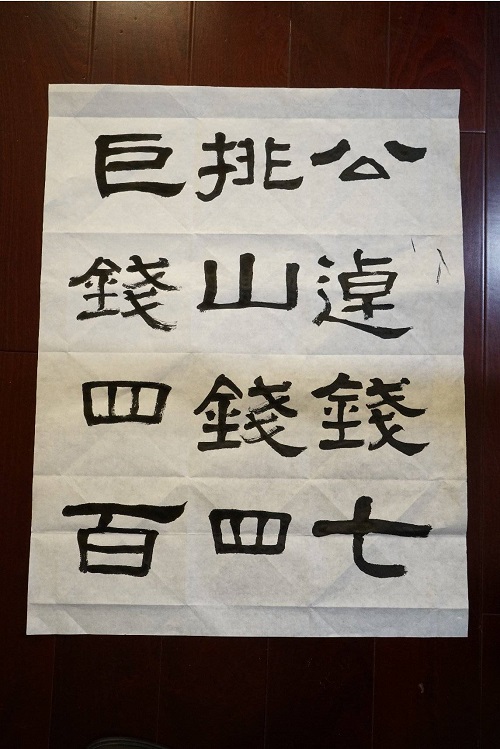 公逴錢七
排山錢四
巨錢四百